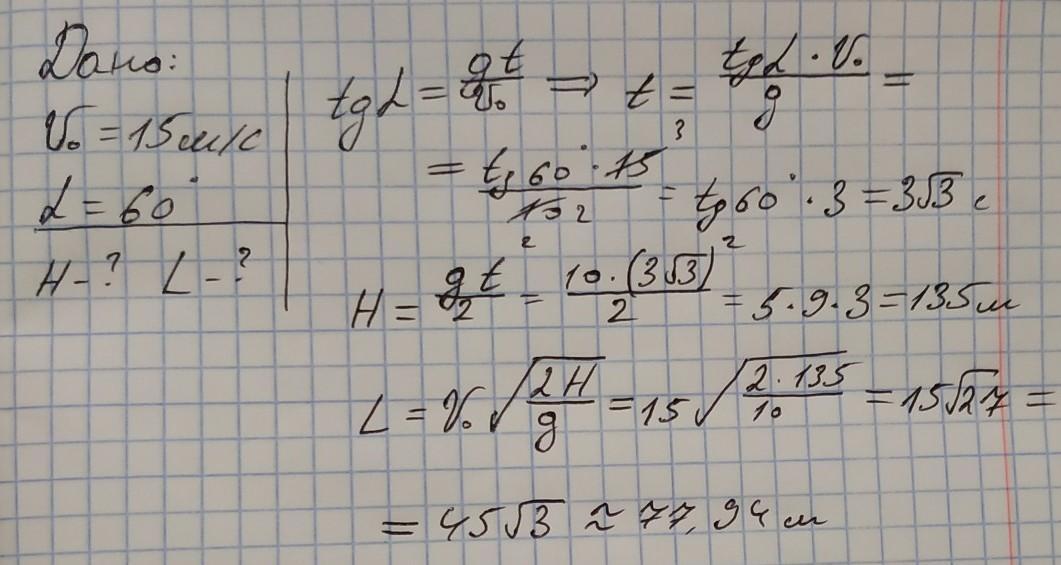 Дано:
V₀ = 15 м/с
α = 60°
H - ? L - ?
tgα = gt/V₀ ⇒ t = tgα · V₀/g =
= tg60° · 15/10 = tg60° · 3/2 = 3√3/2 с
H = gt²/2 = 10 · (3√3)²/2 = 5 · 9 · 3 = 135 м
L = V₀ √(2H/g) = 15 √(2 · 135/10) = 15√27 =
= 45√3 ≈ 77,94 м